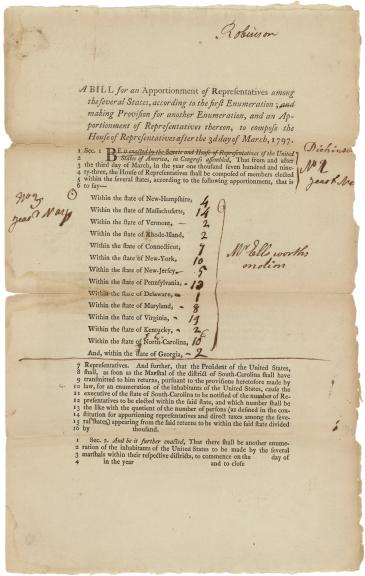 Robinson
A BILL for an Apportionment of Representatives among
the several States, according to the first Enumeration; and
making Provision for another Enumeration, and an Ap-
portionment of Representatives thereon, to compose the
House of Representatives after the 3d day of March, 1797.
1 Sec. 1 BE it enacted by the Senate and House of Representatives of the United
2 States of America, in Congress assembled, That from and after
3 the third day of March, in the year one thousand seven hundred and nine-
4 ty-three, the House of Representatives shall be composed of members elected
5 within the several states, according to the following apportionment, that is
6 to say—
No 2
No 1
Mr Ellsworths
motion
Within the state of New-Hampshire, 4
Within the state of Massachusetts, 14
Within the state of Vermont, – 2
Within the state of Rhode-Island, 2
Within the state of Connecticut, 7
Within the state of New-York, 10
Within the state of New-Jersey, 5
Within the state of Pennsylvania, -
Within the state of Delaware, 1
Within the state of Maryland, – 8
Within the state of Virginia, –
Within the state of Kentucky, – 2
Within the state of North-Carolina, 10
And, within the state of Georgia, – 2
7 Representatives. And further, that the President of the United States,
8 shall, as soon as the Marshal of the district of South-Carolina shall have
9 transmitted to him returns, pursuant to the provisions heretofore made by
10 law, for an enumeration of the inhabitants of the United States, cause the
11 executive of the state of South-Carolina to be notified of the number of Re-
12 presentatives to be elected within the said state, and which number shall be
13 the like with the quotient of the number of persons (as defined in the con-
14 stitution for apportioning representatives and direct taxes among the seve-
15 ral states) appearing from the said returns to be within the said state divided
16 by thousand.
1 Sec. 2. And be it further enacted, That there shall be another enume-
2 ration of the inhabitants of the United States to be made by the several
3 marshals within their respective districts, to commence on the day of
4 in the year and to close